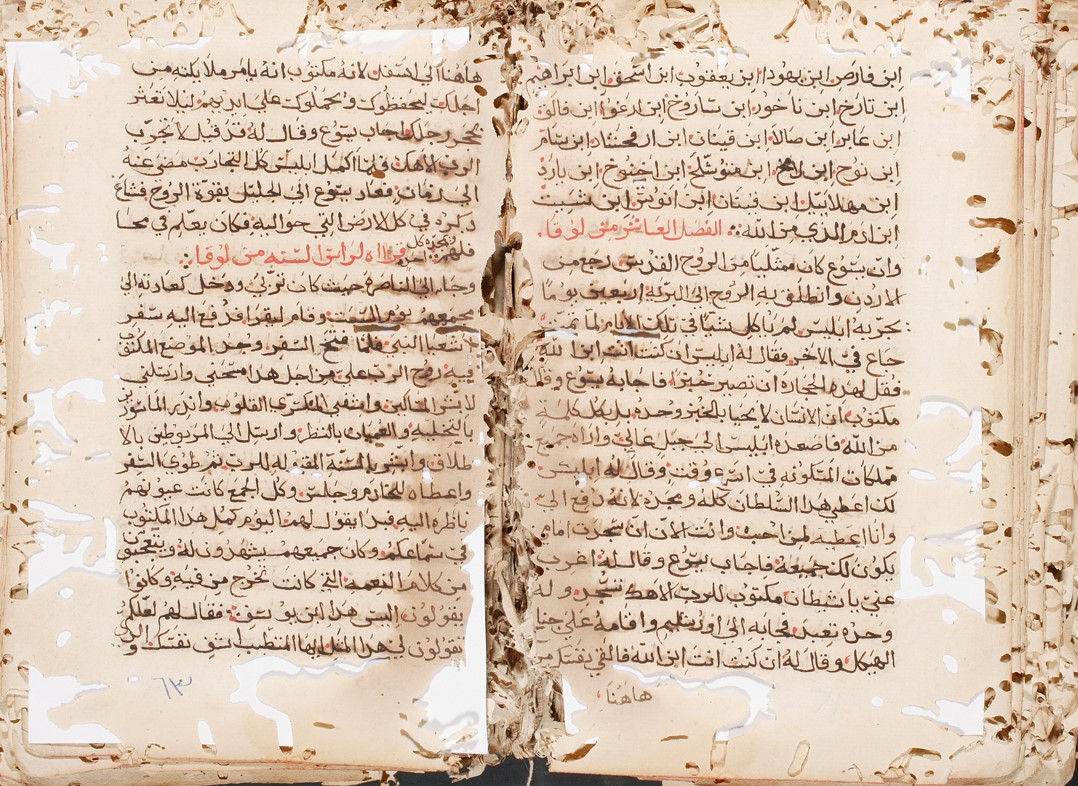 ابن فارص ابن يهودا ابن يعقوب ابن اسحق ابن ابراهيم
ابن تارخ ابن ناخور ابن ساروخ ابن ارغوا ابن فالق
ابن عابر ابن صالا ابن قينان ابن ارفحشاد ابن سام
ابن نوح ابن لامخ ابن متوشلخ ابن اخنوخ ابن يارد
ابن مهلائيل ابن قينان ابن انوش ابن شيت
ابن ادم الذي من الله الفصل العاشر من لوقا
وان يسوع كان ممتلیا من الروح القدس رجع من
الاردن وانطلق به الروح الى البرية اربعين يوما
يجربه ابليس لم ياكل شيا في تلك الايام لما
جاع في الاخر فقال له ابليس ان كنت انت ابن الله
فقل لهده الحجاره ان تصير خبزا فاجابه يسوع وقال
مكتوب ان الانسان لا يحيا بالخبز وحده بل بكل كلمه
من الله فاصعده ابليس الى جبل عالي واراه جميع
مملكات المسكونه في اسرع وقت وقال له ابليس
لك اعطي هدا السلطان كله ومجده لانه دفع الي
وانا اعطيه لمن احب وانت الان ان سجدت امامي
يكون لك جميعه فاجاب يسوع وقال له اغرب
عني يا شيطان مكتوب للرب الاهك تسجد وله
وحده تعبد فجا به الى اورشليم واقامه على جناح
الهيكل وقال له ان كنت انت ابن الله فالقي نفسك من
هاهنا
هاهنا الى اسفل لانه مكتوب انه يامر ملايكته من
اجلك ليحفظوك ويحملوك على ايديهم ليلا تعثر
بحجر رجلك اجاب يسوع وقال له قد قيل لا تجرب
الرب الاهك فلما اكمل ابليس كل التجارب مضى عنه
الى زمان فعاد يسوع الى الجليل بقوة الروح فشاع
ذكره في كل الارض التي حواليه فكان يعلم في مجا
معهم ويمجده كل احد قراه لراس السنه من لوقا
وجا الى الناصرة حيث كان تربى ودخل كعادته الى
مجمعهم يوم السبت وقام ليقرا فدفع اليه سفر
اشعيا النبي فلما فتح السفر وجد الموضع المكتوب
فيه روح الرب علي من اجل هدا مسحني وارسلني
لابشر المساكين واشفي منكسري القلوب واندر الماسورين
بالتخليه والعميان بالنظر وارسل الى المربوطين بالا
طلاق وابشر بالسنة المقبوله للرب ثم طوى السفر
واعطاه للخادم وجلس وكل الجمع كانت عيونهم
ناظره اليه فبدا يقول لهم اليوم كمل هدا المكتوب
في سماعكم وكان جميعهم يشهدون له ويتعجبون
من كلام النعمه التي كانت تخرج من فيه وكانوا
يقولون اليس هدا ابن يوسف فقال لهم لعلكم
تقولون لي هدا المثل يا ايها المتطبب اشف نفسك والذي
٦٣